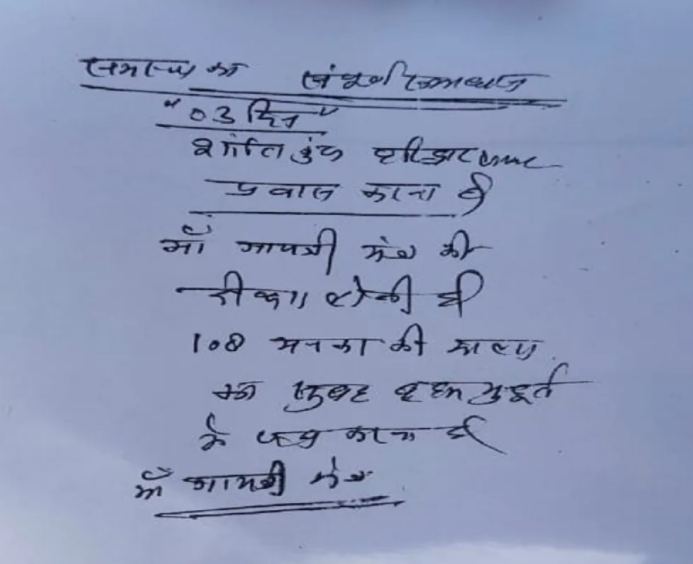 समस्या का संपूर्ण समाधान
"03 दिन"
शांति कुंज हरिद्वार
प्रवास करना है
माँ गायत्री मंत्र की
दीक्षा लेनी है
108 मनका की माला
का सुबह ब्रह्म मुहूर्त
में जप करना है
माँ गायत्री मंत्र